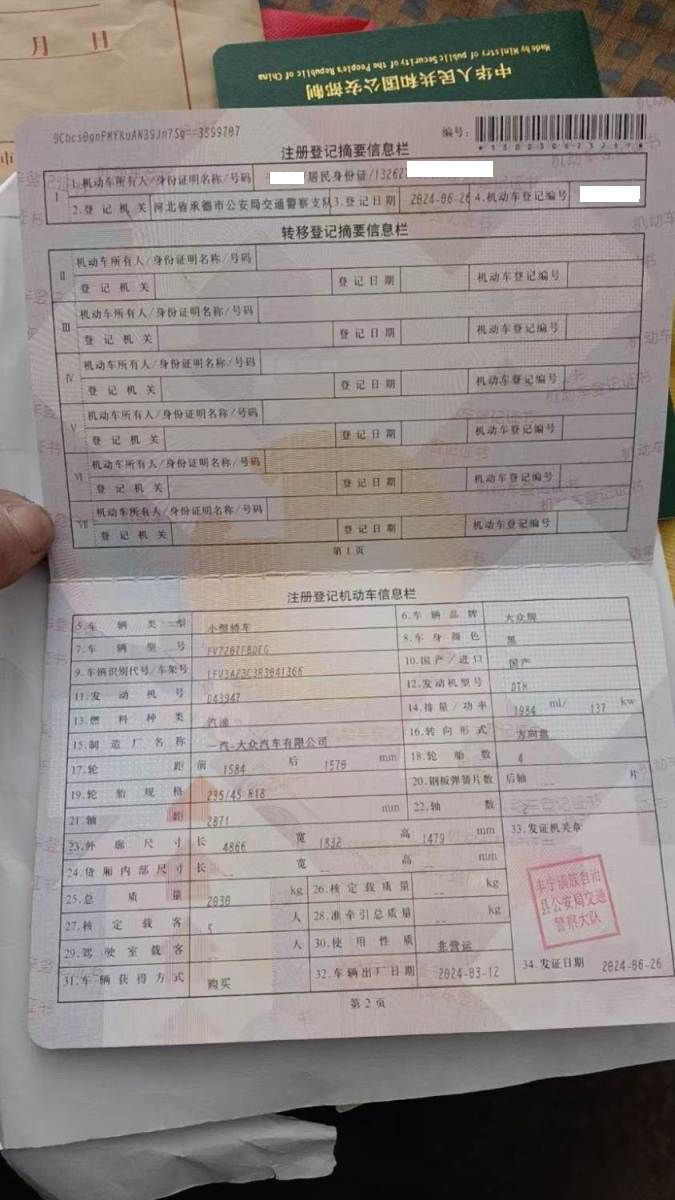 月 日
Made by Ministry of Public Security of the People's Republic of China
中华人民共和国公安部制
编号:
注册登记摘要信息栏
I 1.机动车所有人/身份证明名称/号码 /居民身份证/13262
2.登记机关 河北省承德市公安局交通警察支队 3.登记日期 2024-06-26 4.机动车登记编号
转移登记摘要信息栏
II 机动车所有人/身份证明名称/号码
登记机关 登记日期 机动车登记编号
III 机动车所有人/身份证明名称/号码
登记机关 登记日期 机动车登记编号
IV 机动车所有人/身份证明名称/号码
登记机关 登记日期 机动车登记编号
V 机动车所有人/身份证明名称/号码
登记机关 登记日期 机动车登记编号
VI 机动车所有人/身份证明名称/号码
登记机关 登记日期 机动车登记编号
VII 机动车所有人/身份证明名称/号码
登记机关 登记日期 机动车登记编号
第1页
注册登记机动车信息栏
5.车辆类型 小型轿车 6.车辆品牌 大众牌
7.车辆型号 8.车身颜色 黑
9.车辆识别代号/车架号 10.国产/进口 国产
11.发动机号 D43947 12.发动机型号 DTH
13.燃料种类 汽油 14.排量/功率 1984 ml/ 137 kw
15.制造厂名称 一汽-大众汽车有限公司 16.转向形式 方向盘
17.轮距 前 1584 后 1578 mm 18.轮胎数 4
19.轮胎规格 235/45 R18 20.钢板弹簧片数 后轴 -- 片
21.轴距 2871 mm 22.轴数 2
23.外廓尺寸 长 4866 宽 1832 高 1479 mm 33.发证机关章
24.货厢内部尺寸 长 -- 宽 -- 高 -- mm
25.总质量 2030 kg 26.核定载质量 -- kg
丰宁满族自治
县公安局交通
警察大队
27.核定载客 5 人 28.准牵引总质量 -- kg
29.驾驶室载客 -- 人 30.使用性质 非营运
31.车辆获得方式 购买 32.车辆出厂日期 2024-03-12 34.发证日期 2024-06-26
第2页